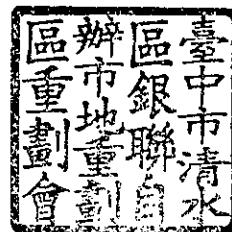 臺中市清水
區銀聯自
辦市地重劃
區重劃會